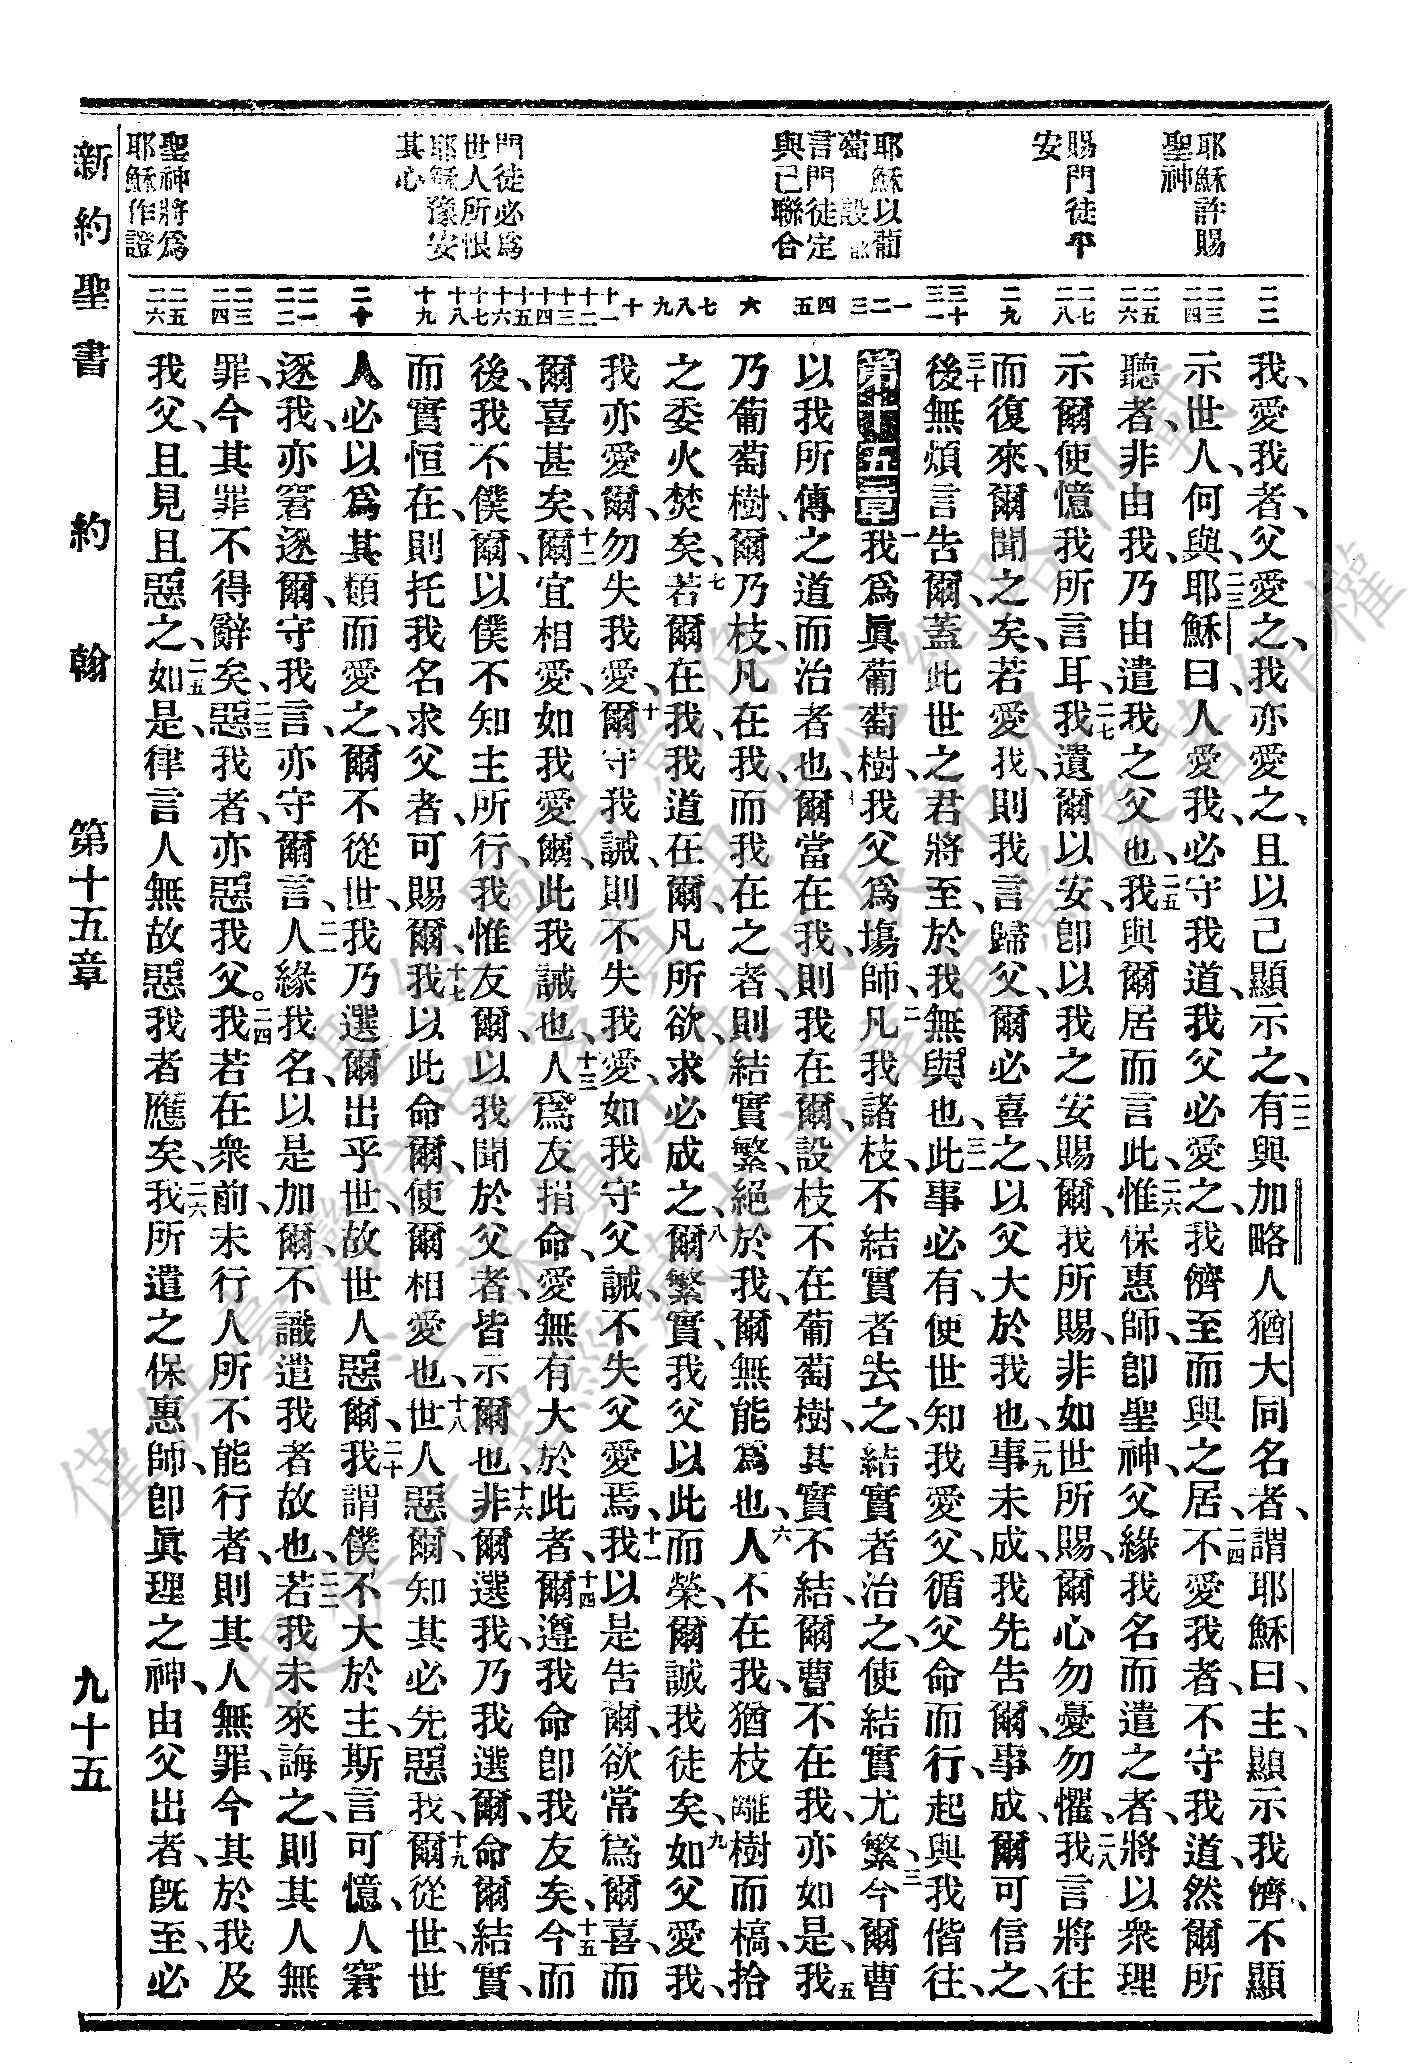 耶穌許賜
聖神
賜門徒平
安
耶穌以葡
萄設
言門徒定
與己聯合
門徒必爲
世人所恨
耶穌豫安
其心
聖神將爲
耶穌作證
二二
二三
二四
二五
二六
二七
二八
二九
三十
三一
一
二
三
四
五
六
七
八
九
十
十一
十二
十三
十四
十五
十六
十七
十八
十九
二十
二一
二二
二三
二四
二五
二六
我、愛我者、父愛之、我亦愛之、且以己顯示之、二二有與加略人猶大同名者、謂耶穌曰、主、顯示我儕、不顯
示世人、何與、二三耶穌曰、人愛我、必守我道、我父必愛之、我儕至而與之居、二四不愛我者、不守我道、然爾所
聽者、非由我、乃由遣我之父也、二五我與爾居而言此、二六惟保惠師、卽聖神、父緣我名而遣之者、將以衆理
示爾、使憶我所言耳、二七我遺爾以安、卽以我之安賜爾、我所賜、非如世所賜、爾心勿憂勿懼、二八我言將往
而復來、爾聞之矣、若愛我、則我言歸父、爾必喜之、以父大於我也、二九事未成、我先告爾、事成、爾可信之、
三十後無煩言告爾、蓋此世之君將至、於我無與也、三一此事必有、使世知我愛父、循父命而行、起與我偕往、
第十五章 一我爲眞葡萄樹、我父爲塲師、二凡我諸枝、不結實者去之、結實者治之、使結實尤繁、三今爾曹
以我所傳之道而治者也、爾當在我、則我在爾、設枝不在葡萄樹、其實不結、爾曹不在我、亦如是、五我
乃葡萄樹、爾乃枝、凡在我、而我在之者、則結實繁、絕於我、爾無能爲也、六人不在我、猶枝離樹而槁、拾
之委火焚矣、七若爾在我、我道在爾、凡所欲、求必成之、八爾繁實、我父以此而榮、爾誠我徒矣、九如父愛我、
我亦愛爾、勿失我愛、十爾守我誡、則不失我愛、如我守父誡、不失父愛焉、十一我以是告爾、欲常爲爾喜、而
爾喜甚矣、十二爾宜相愛、如我愛爾、此我誡也、十三人爲友捐命、愛無有大於此者、十四爾遵我命、卽我友矣、十五今而
後、我不僕爾、以僕不知主所行、我惟友爾、以我聞於父者、皆示爾也、十六非爾選我、乃我選爾、命爾結實、
而實恒在、則托我名求父者、可賜爾、十七我以此命爾、使爾相愛也、十八世人惡爾、知其必先惡我、十九爾從世、世
人必以爲其類而愛之、爾不從世、我乃選爾出乎世、故世人惡爾、二十我謂僕不大於主、斯言可憶、人窘
逐我、亦窘逐爾、守我言、亦守爾言、二一人緣我名、以是加爾、不識遣我者故也、二二若我未來誨之、則其人無
罪、今其罪不得辭矣、二三惡我者、亦惡我父。二四我若在衆前、未行人所不能行者、則其人無罪、今其於我及
我父、且見且惡之、二五如是、律言人無故惡我者應矣、二六我所遣之保惠師、卽眞理之神、由父出者、旣至、必
新約聖書 約翰 第十五章 九十五